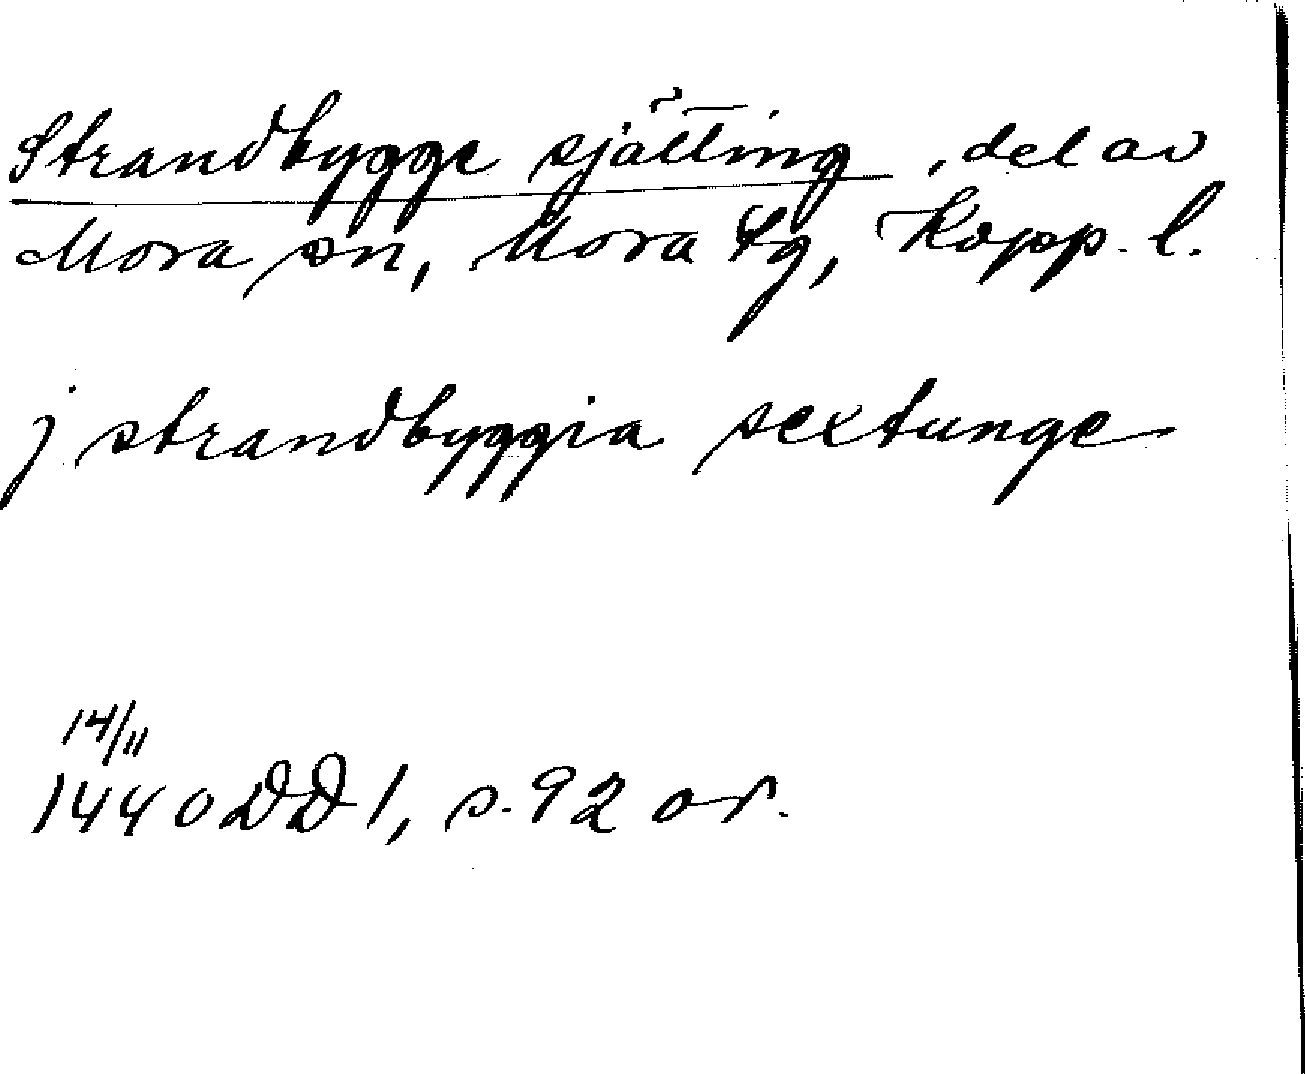 Strandbygge sjätting, del av
Mora sn, Mora tg, Kopp. l.
j strandbyggia sextunge
14/11
1440 DD 1, s. 92 or.